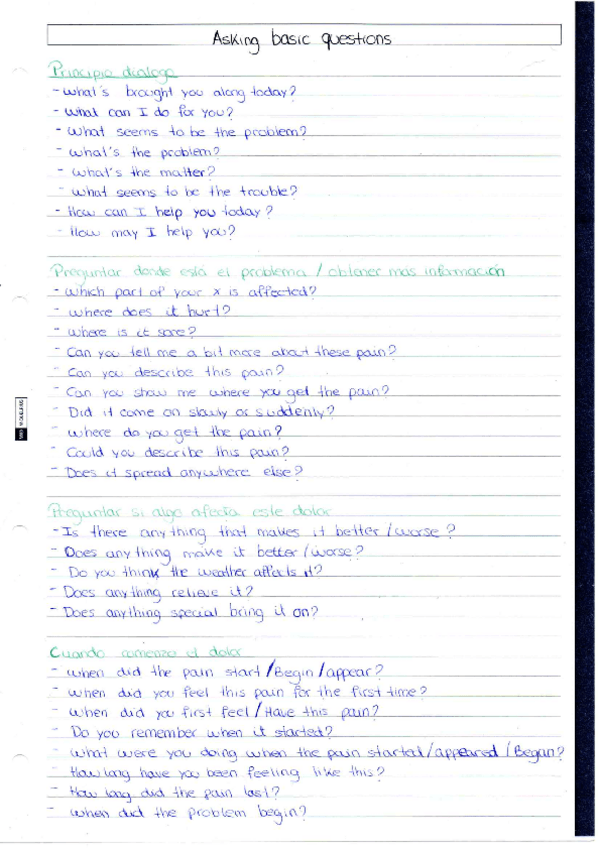 Asking basic questions
Principio dialogo
- What's brought you along today?
- What can I do for you?
- What seems to be the problem?
- What's the problem?
- What's the matter?
- What seems to be the trouble?
- How can I help you today?
- How may I help you?
Preguntar donde está el problema / obtener mas información
- Which part of your x is affected?
- Where does it hurt?
- Where is it sore?
- Can you tell me a bit more about these pain?
- Can you describe this pain?
- Can you show me where you get the pain?
- Did it come on slowly or suddenly?
- Where do you get the pain?
- Could you describe this pain?
- Does it spread anywhere else?
Preguntar si algo afecta este dolor
- Is there anything that makes it better / worse?
- Does anything make it better / worse?
- Do you think the weather affects it?
- Does anything relieve it?
- Does anything special bring it on?
Cuando comenzo el dolor
- When did the pain start / Begin / appear?
- When did you feel this pain for the first time?
- When did you first feel / Have this pain?
- Do you remember when it started?
- What were you doing when the pain started / appeared / Began?
- How long have you been feeling like this?
- How long did the pain last?
- When did the problem begin?